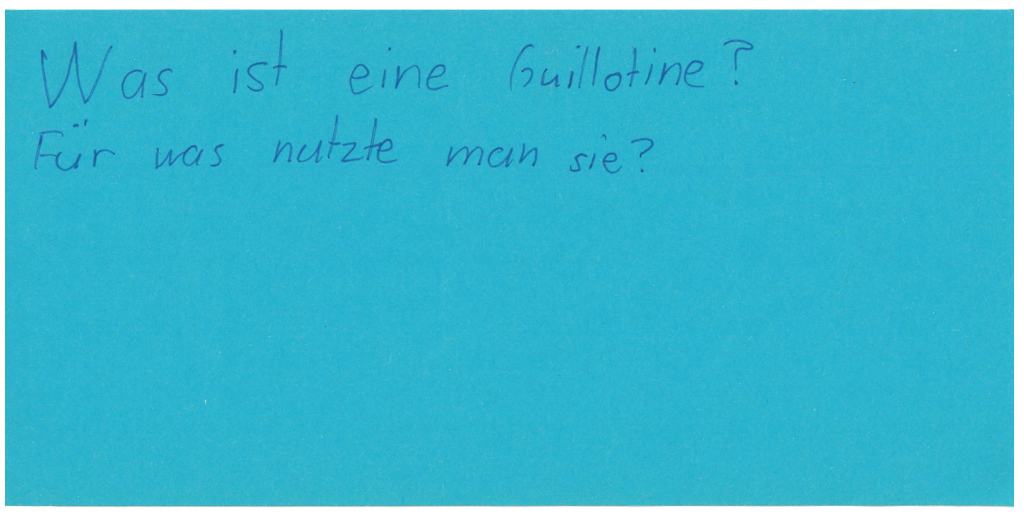 Was ist eine Guillotine?
Für was nutzte man sie?